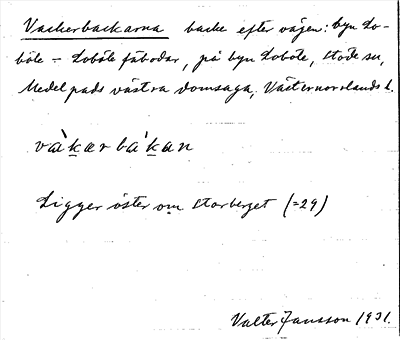 Vackerbackarna backe efter vägen: byn Lo-
böle – Loböle fäbodar, på byn Loböle, Stöde sn,
Medelpads västra domsaga, Västernorrlands l.
và̀karbákan
Ligger öster om Storberget (=29)
Valter Jansson 1931.